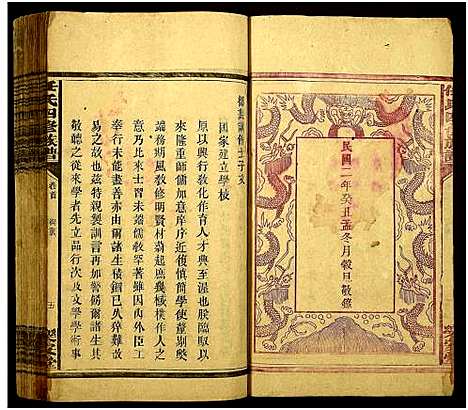 民國二年癸丑孟冬月穀日敬鐫
御製訓飭士子文
國家建立學校
原以興行敎化作育人才典至渥也朕臨馭以
來隆重師儒加意庠序近復愼簡學使釐剔弊
端務期風敎修明賢材蔚起庶幾棫樸作人之
意乃比來士習未端儒敎罕著雖因內外臣工
奉行未能盡善亦由爾諸生積錮已久猝難改
易之故也茲特親製訓言再加警飭爾諸生其
敬聽之從來學者先立品行次及文學學術事
任氏四修族譜
卷首
五